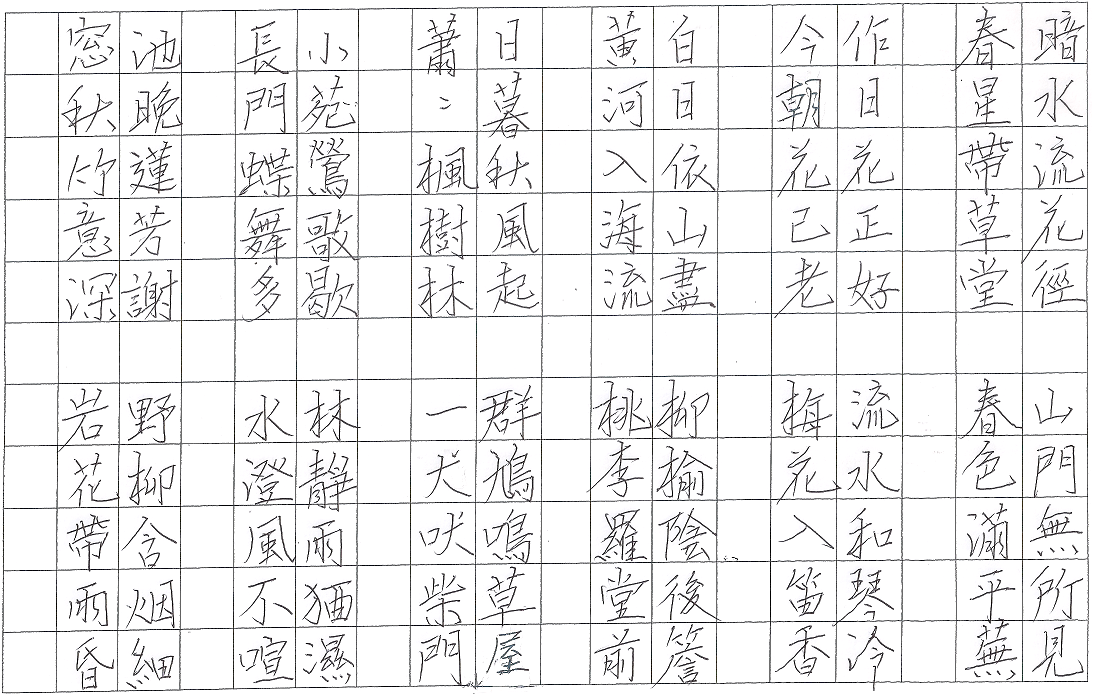 暗水流花徑
春星帶草堂
作日花正好
今朝花已老
白日依山盡
黃河入海流
日暮秋風起
蕭〻楓樹林
小苑鶯歌歇
長門蝶舞多
池晚蓮芳謝
窓秋竹意深
山門無所見
春色滿平蕪
流水和琴冷
梅花入笛香
柳榆陰後簷
桃李羅堂前
群鳩鳴草屋
一犬吠柴門
林靜雨猶濕
水澄風不喧
野柳含烟細
岩花帶雨昏